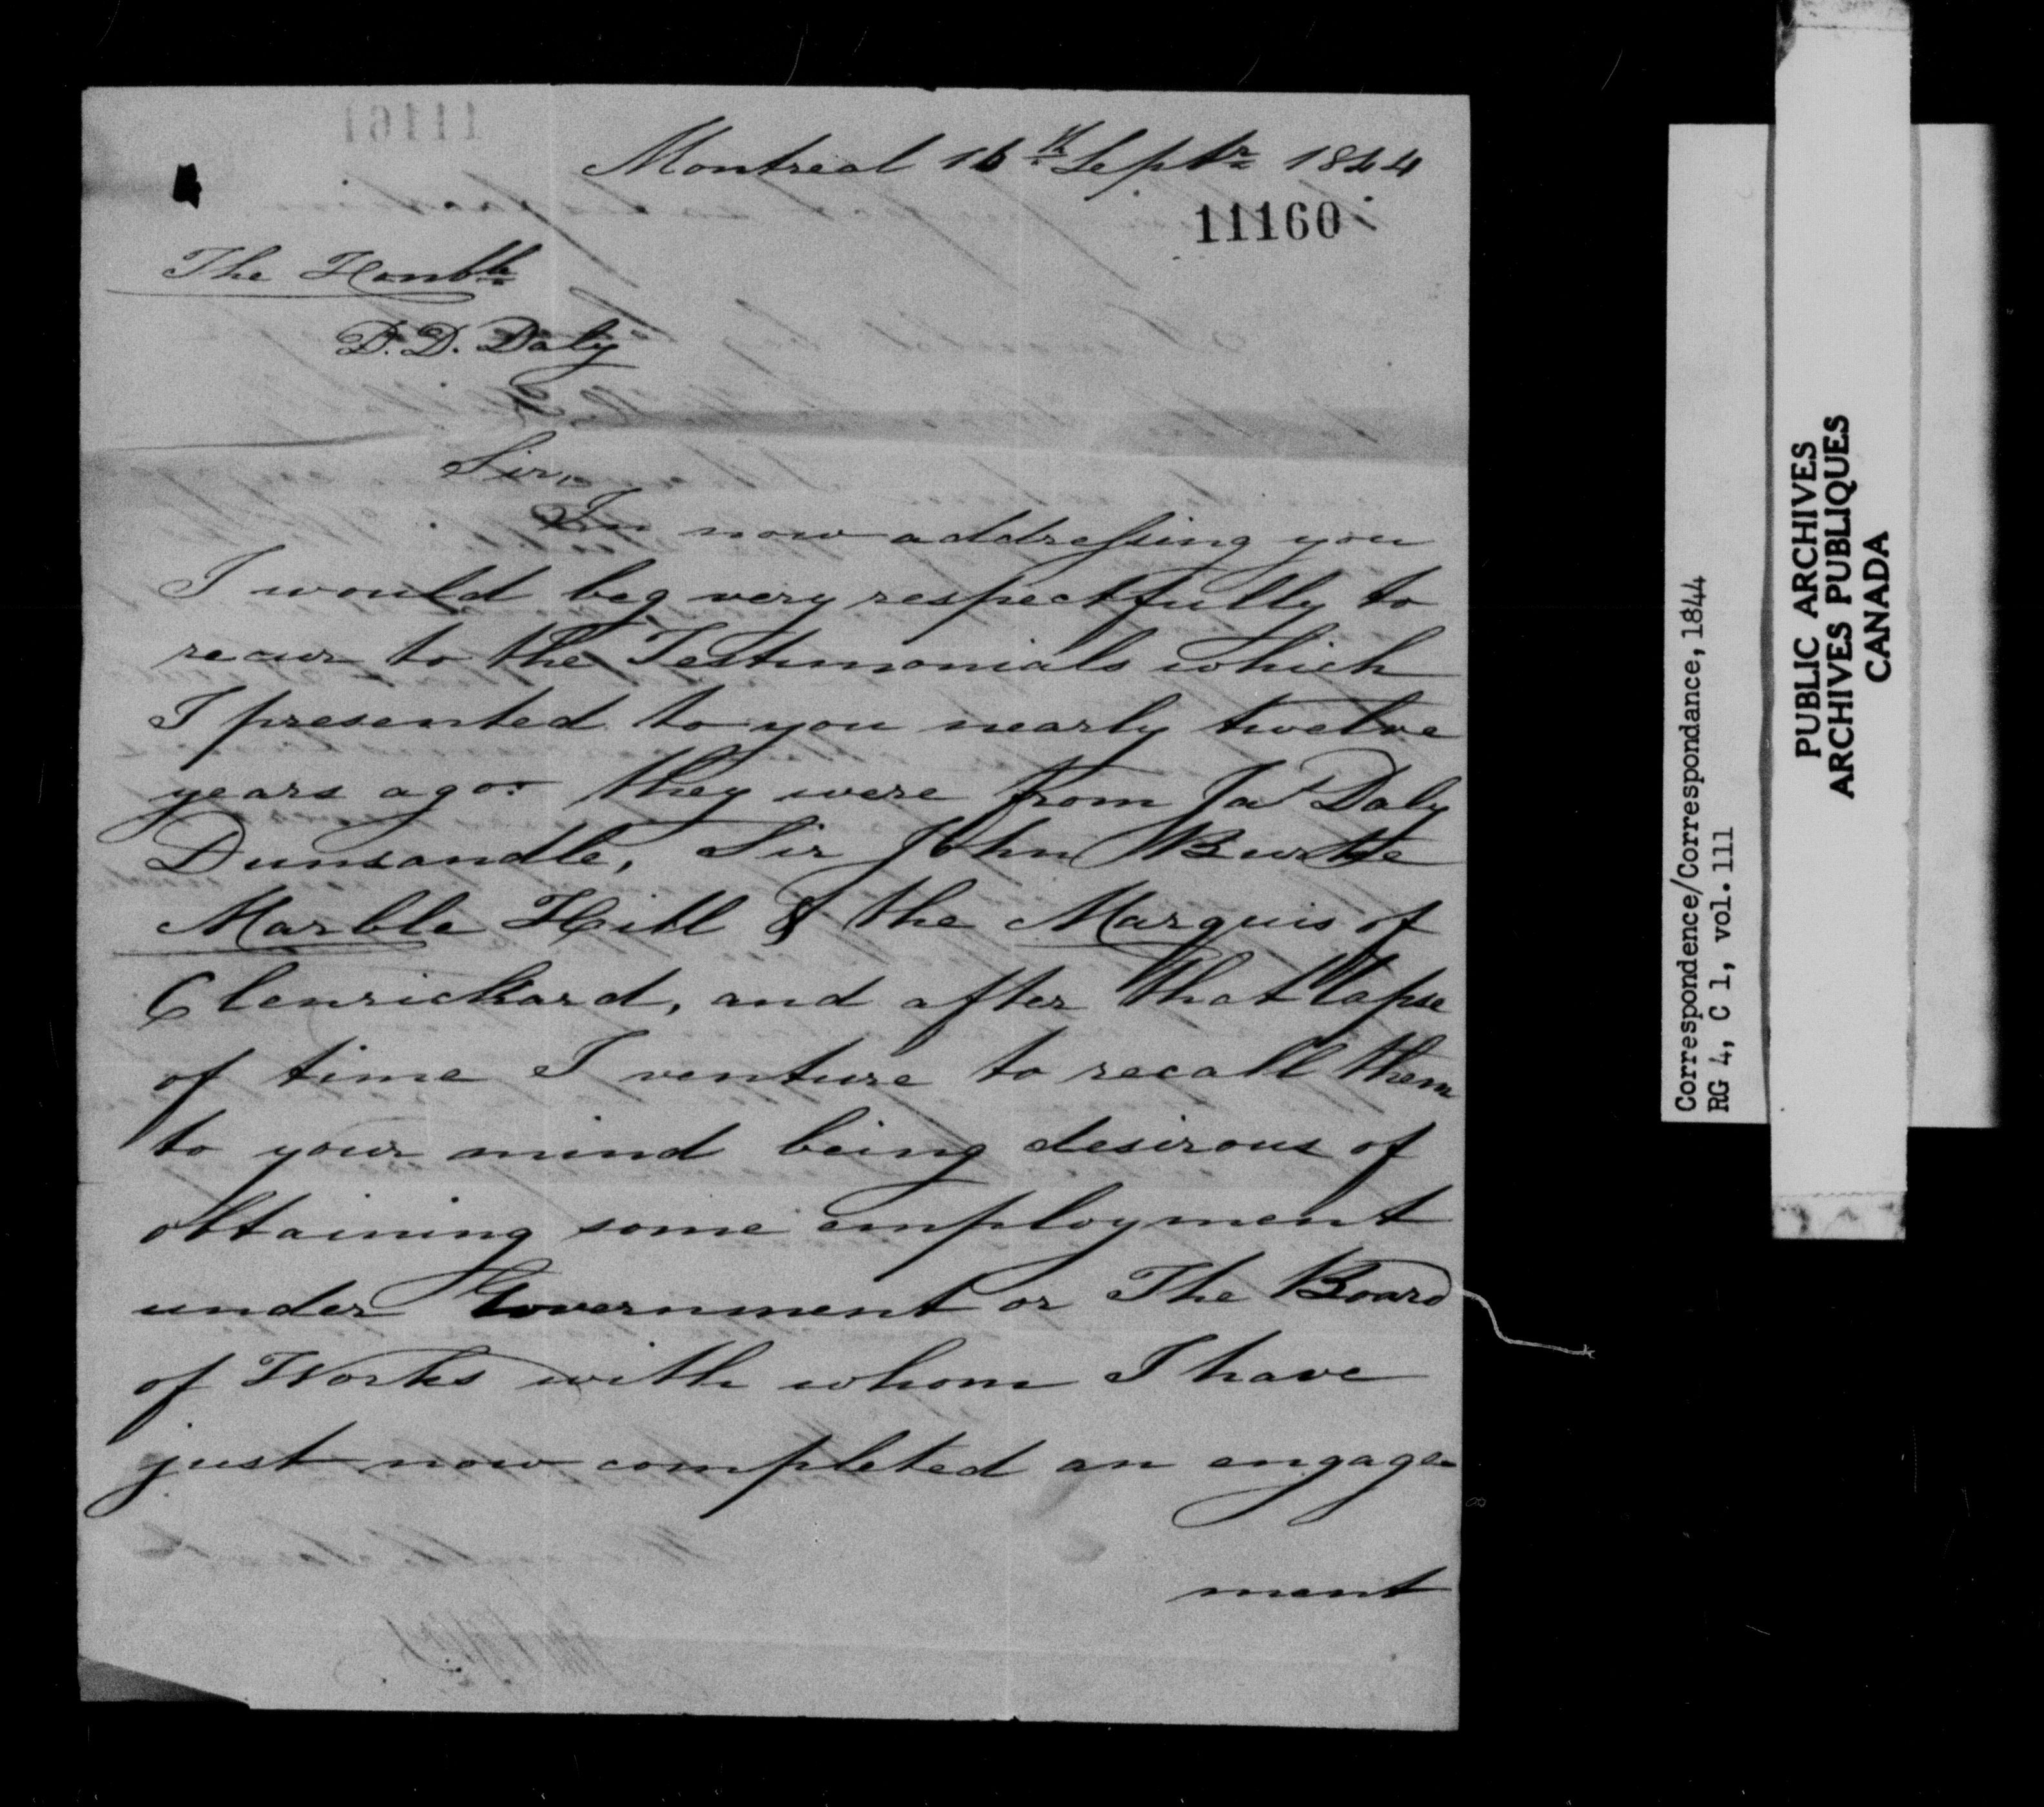 Montreal 16th Septr 1844
11160
The Honble
D. D. Daly
Sir,
In now addressing you
I would beg very respectfully to
recur to the Testimonials which
I presented to you nearly twelve
years ago. they were from Jas Daly
Dunsandle, Sir John Burke
Marble Hill & the Marquis of
Clenrickard, and after that lapse
of time I venture to recall them
to your mind being desirous of
obtaining some employment
under Government or The Board
of Works with whom I have
just now completed an engage-
ment
Correspondence/Correspondance, 1844
RG 4, C 1, vol. 111
PUBLIC ARCHIVES
ARCHIVES PUBLIQUES
CANADA